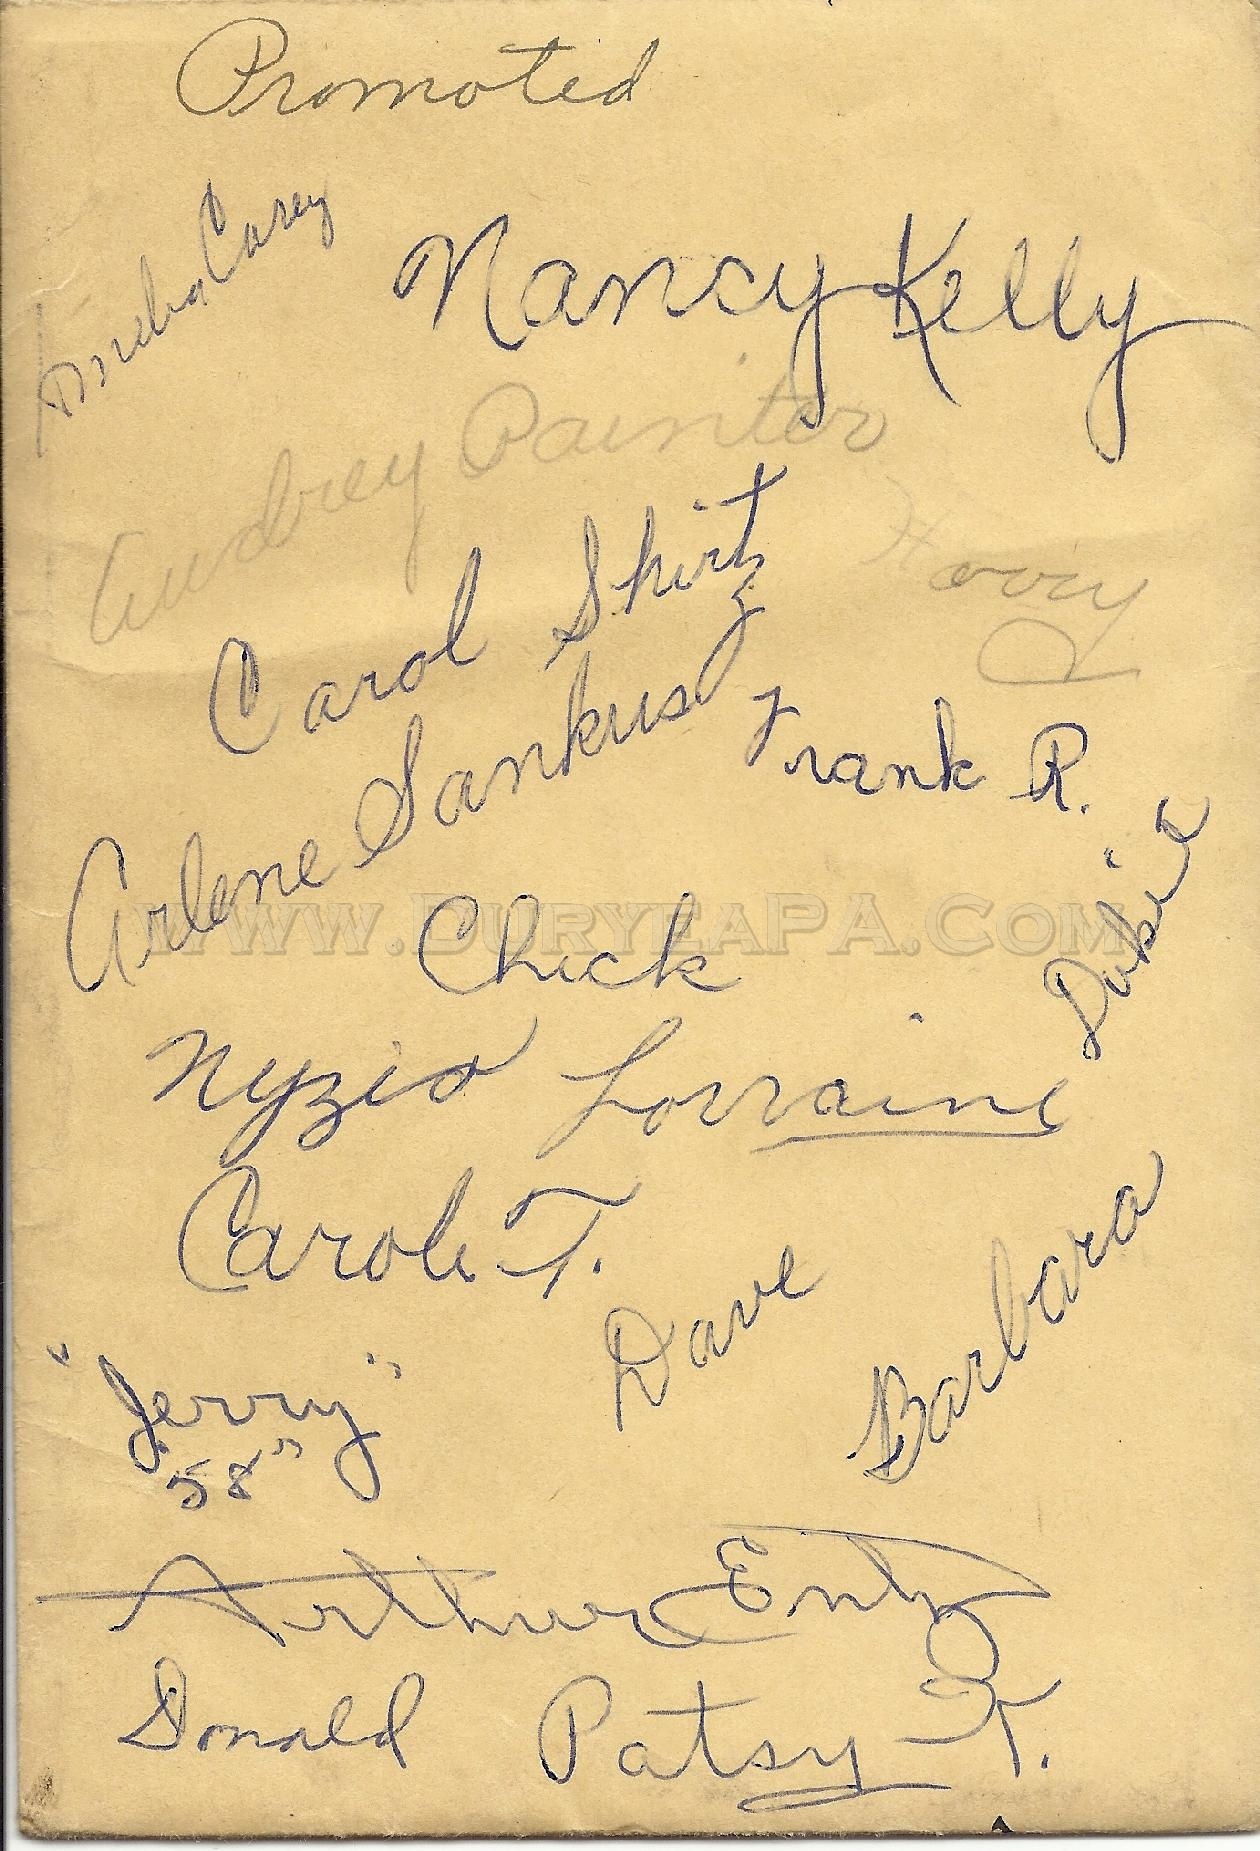 Promoted
Carey
Nancy Kelly
Audrey Painter
Carol Shirtz
Arlene Sankus
Frank R.
"Dukie"
www.DuryeaPA.Com
Chick
Nyzio
Lorraine
Carole T.
Dave
Barbara
"Jerry"
58"
Arthur
Donald
Patsy K.